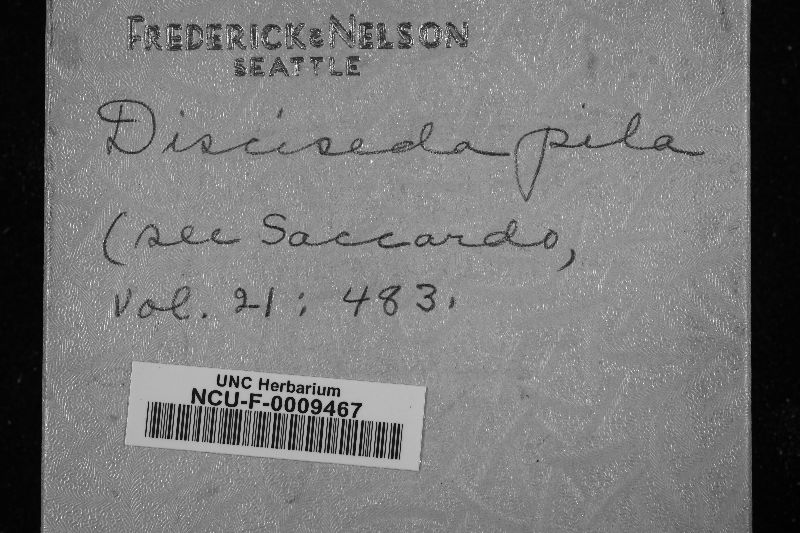 FREDERICK & NELSON
SEATTLE
Disciseda pila
(see Saccardo,
vol. 21: 483.
UNC Herbarium
NCU-F-0009467